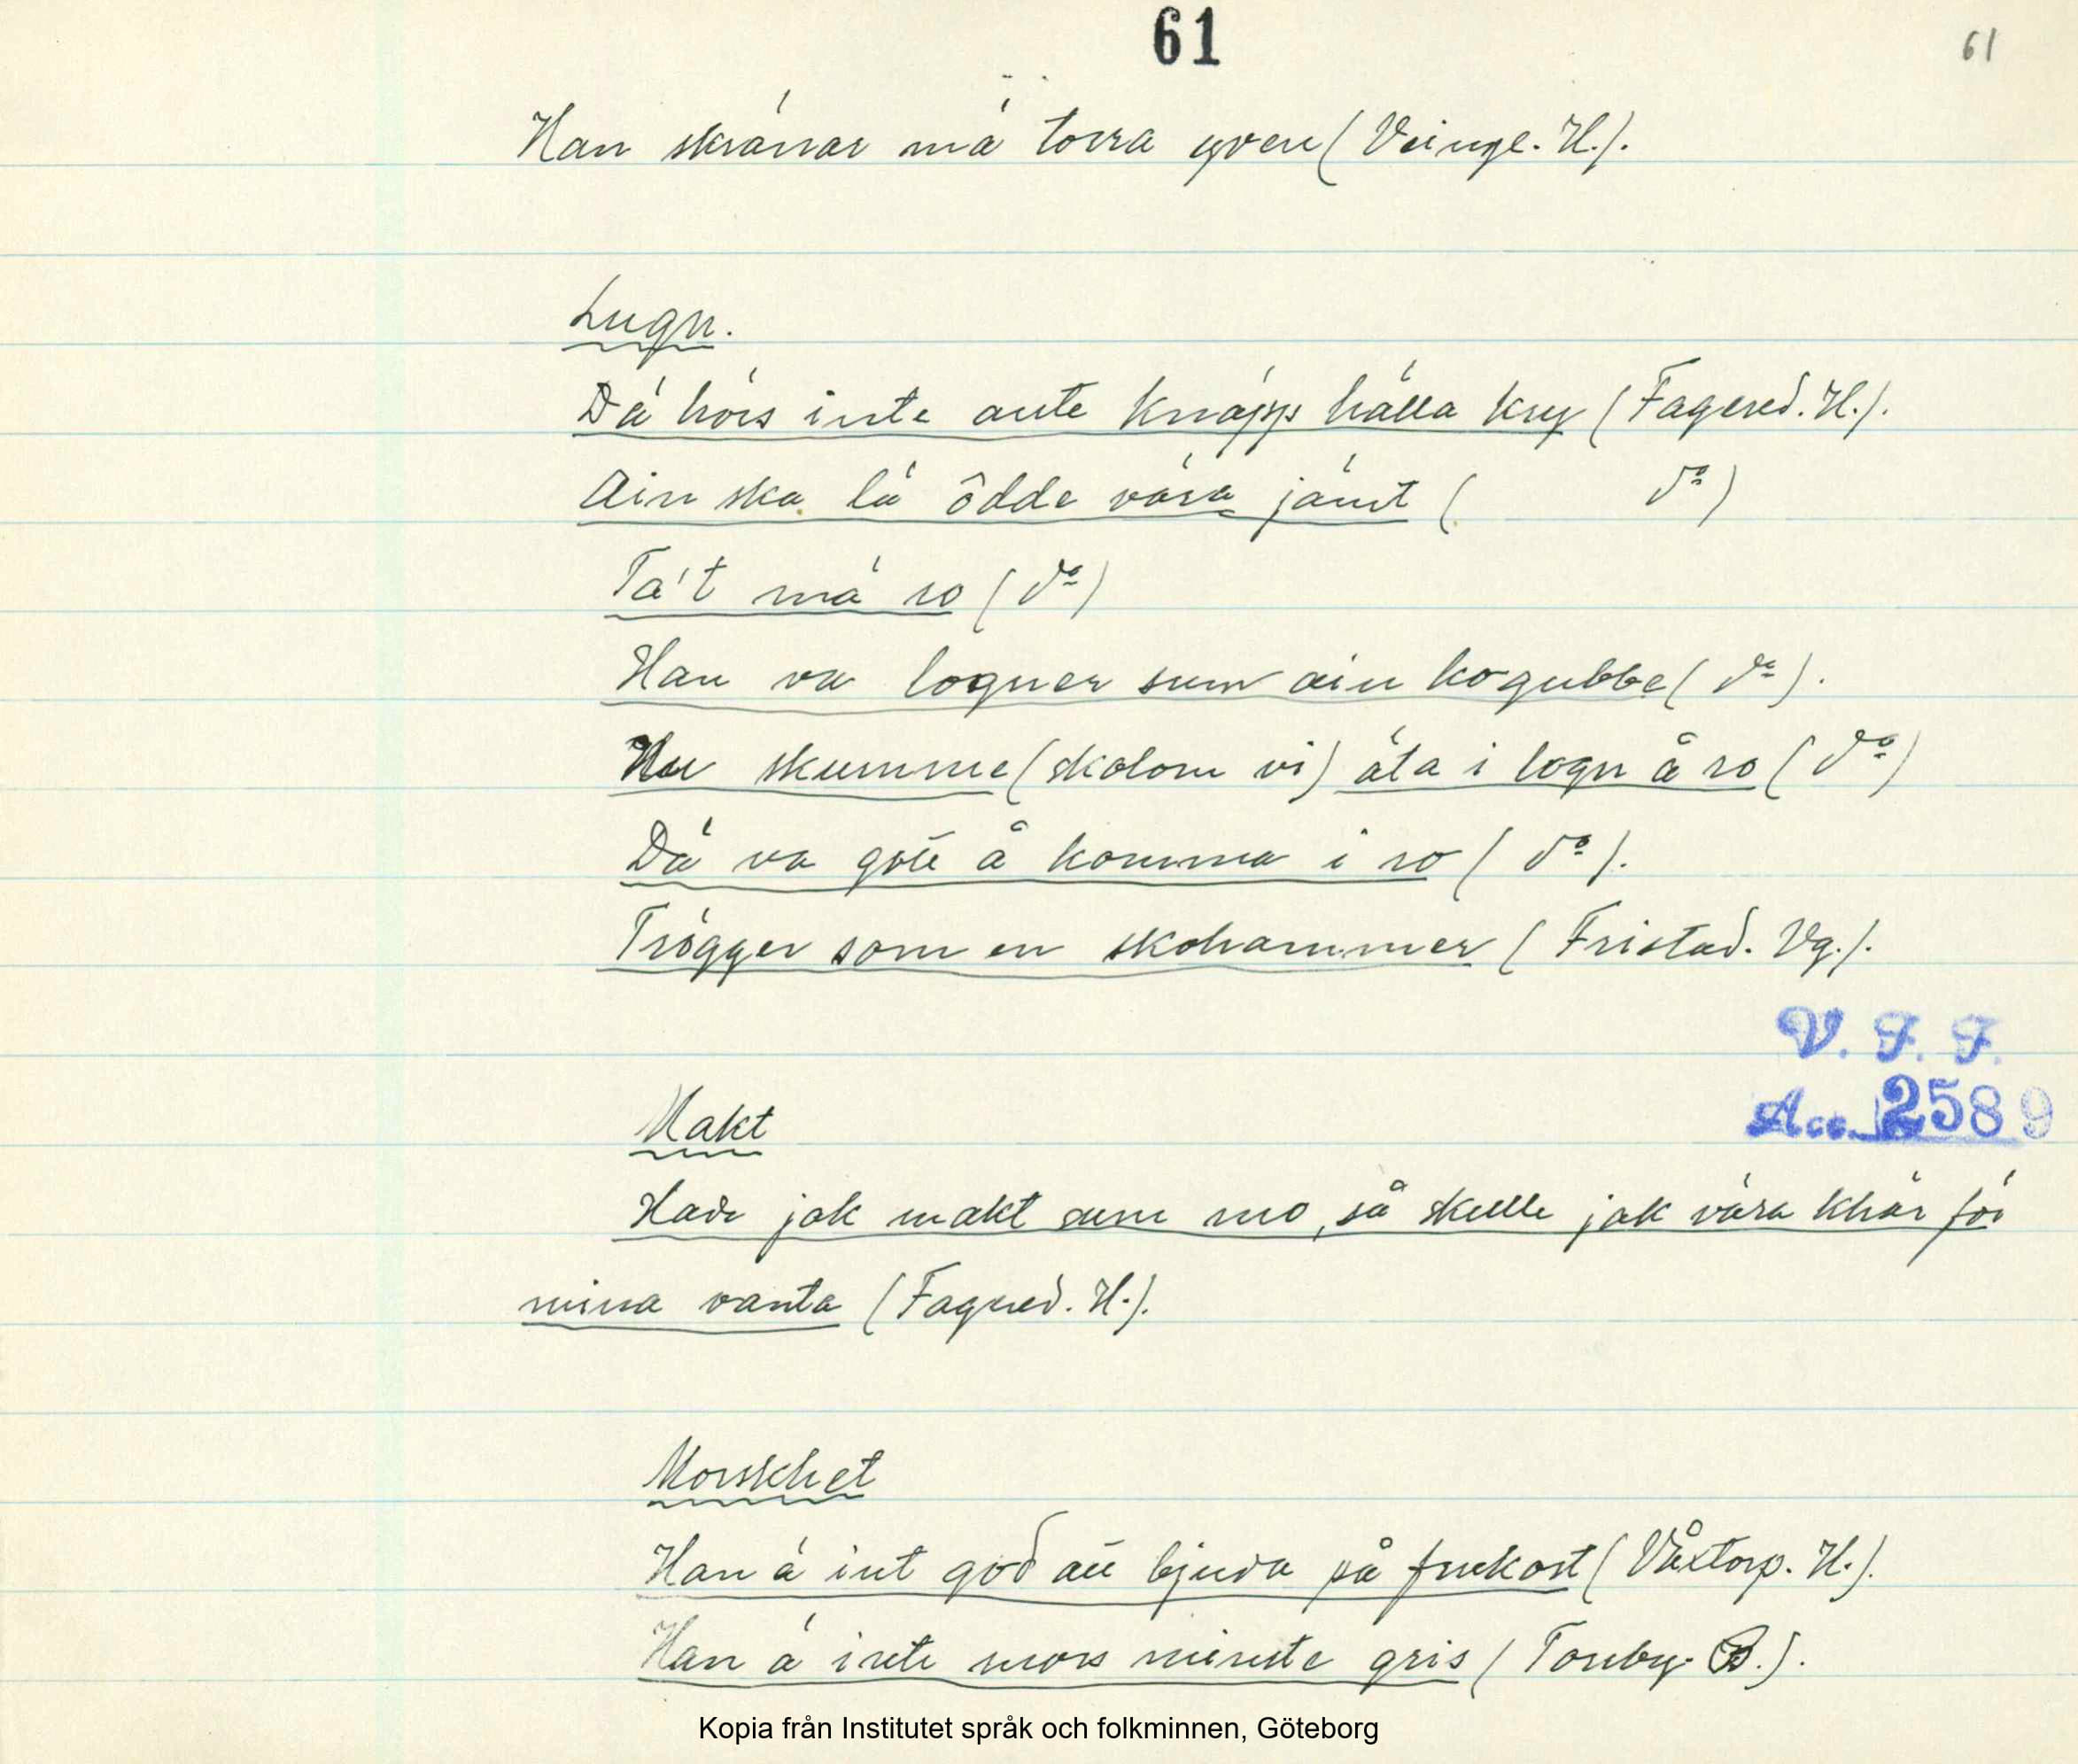 61
61
Han skränar mä torra yven (Veinge. H.).
Lugn.
Dä hörs inte aute knäpp hälla kny (Fagered. H.).
Ain ska lä ôdde vära jämt ( d:o)
Ta't mä ro (d:o)
Han va logner sum ain kogubbe (d:o).
Nu skumme (skolom vi) äta i logn å ro (d:o)
Dä va gott å komma i ro (d:o).
Trögger som en skohammer (Fristad. Vg.).
V. F. F.
Acc. 2589
Makt
Hade jak makt sum mo, så skulle jak vära khär för
mina vanta (Fagered. H.).
Morskhet
Han ä int god att bjuda på frukost (Våxtorp. H.).
Han ä inte mors minste gris (Tonby. B.).
Kopia från Institutet språk och folkminnen, Göteborg